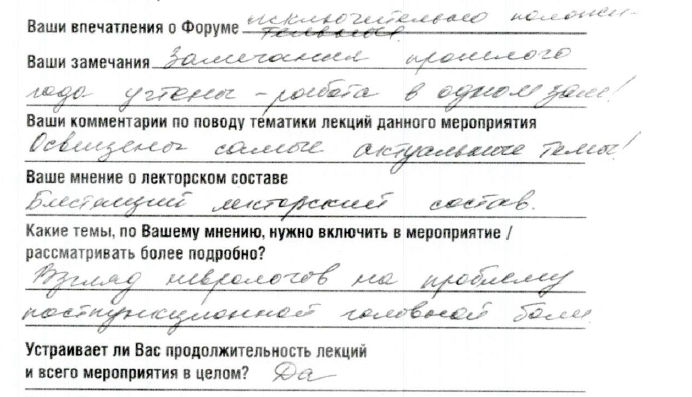 Ваши впечатления о Форуме исключительно положи-
тельные.
Ваши замечания Замечания прошлого
года учтены - работа в одном зале!
Ваши комментарии по поводу тематики лекций данного мероприятия
Освещены самые актуальные темы!
Ваше мнение о лекторском составе
Блестящий лекторский состав.
Какие темы, по Вашему мнению, нужно включить в мероприятие /
рассматривать более подробно?
Взгляд неврологов на проблему
постпункционной головной боли
Устраивает ли Вас продолжительность лекций
и всего мероприятия в целом? Да